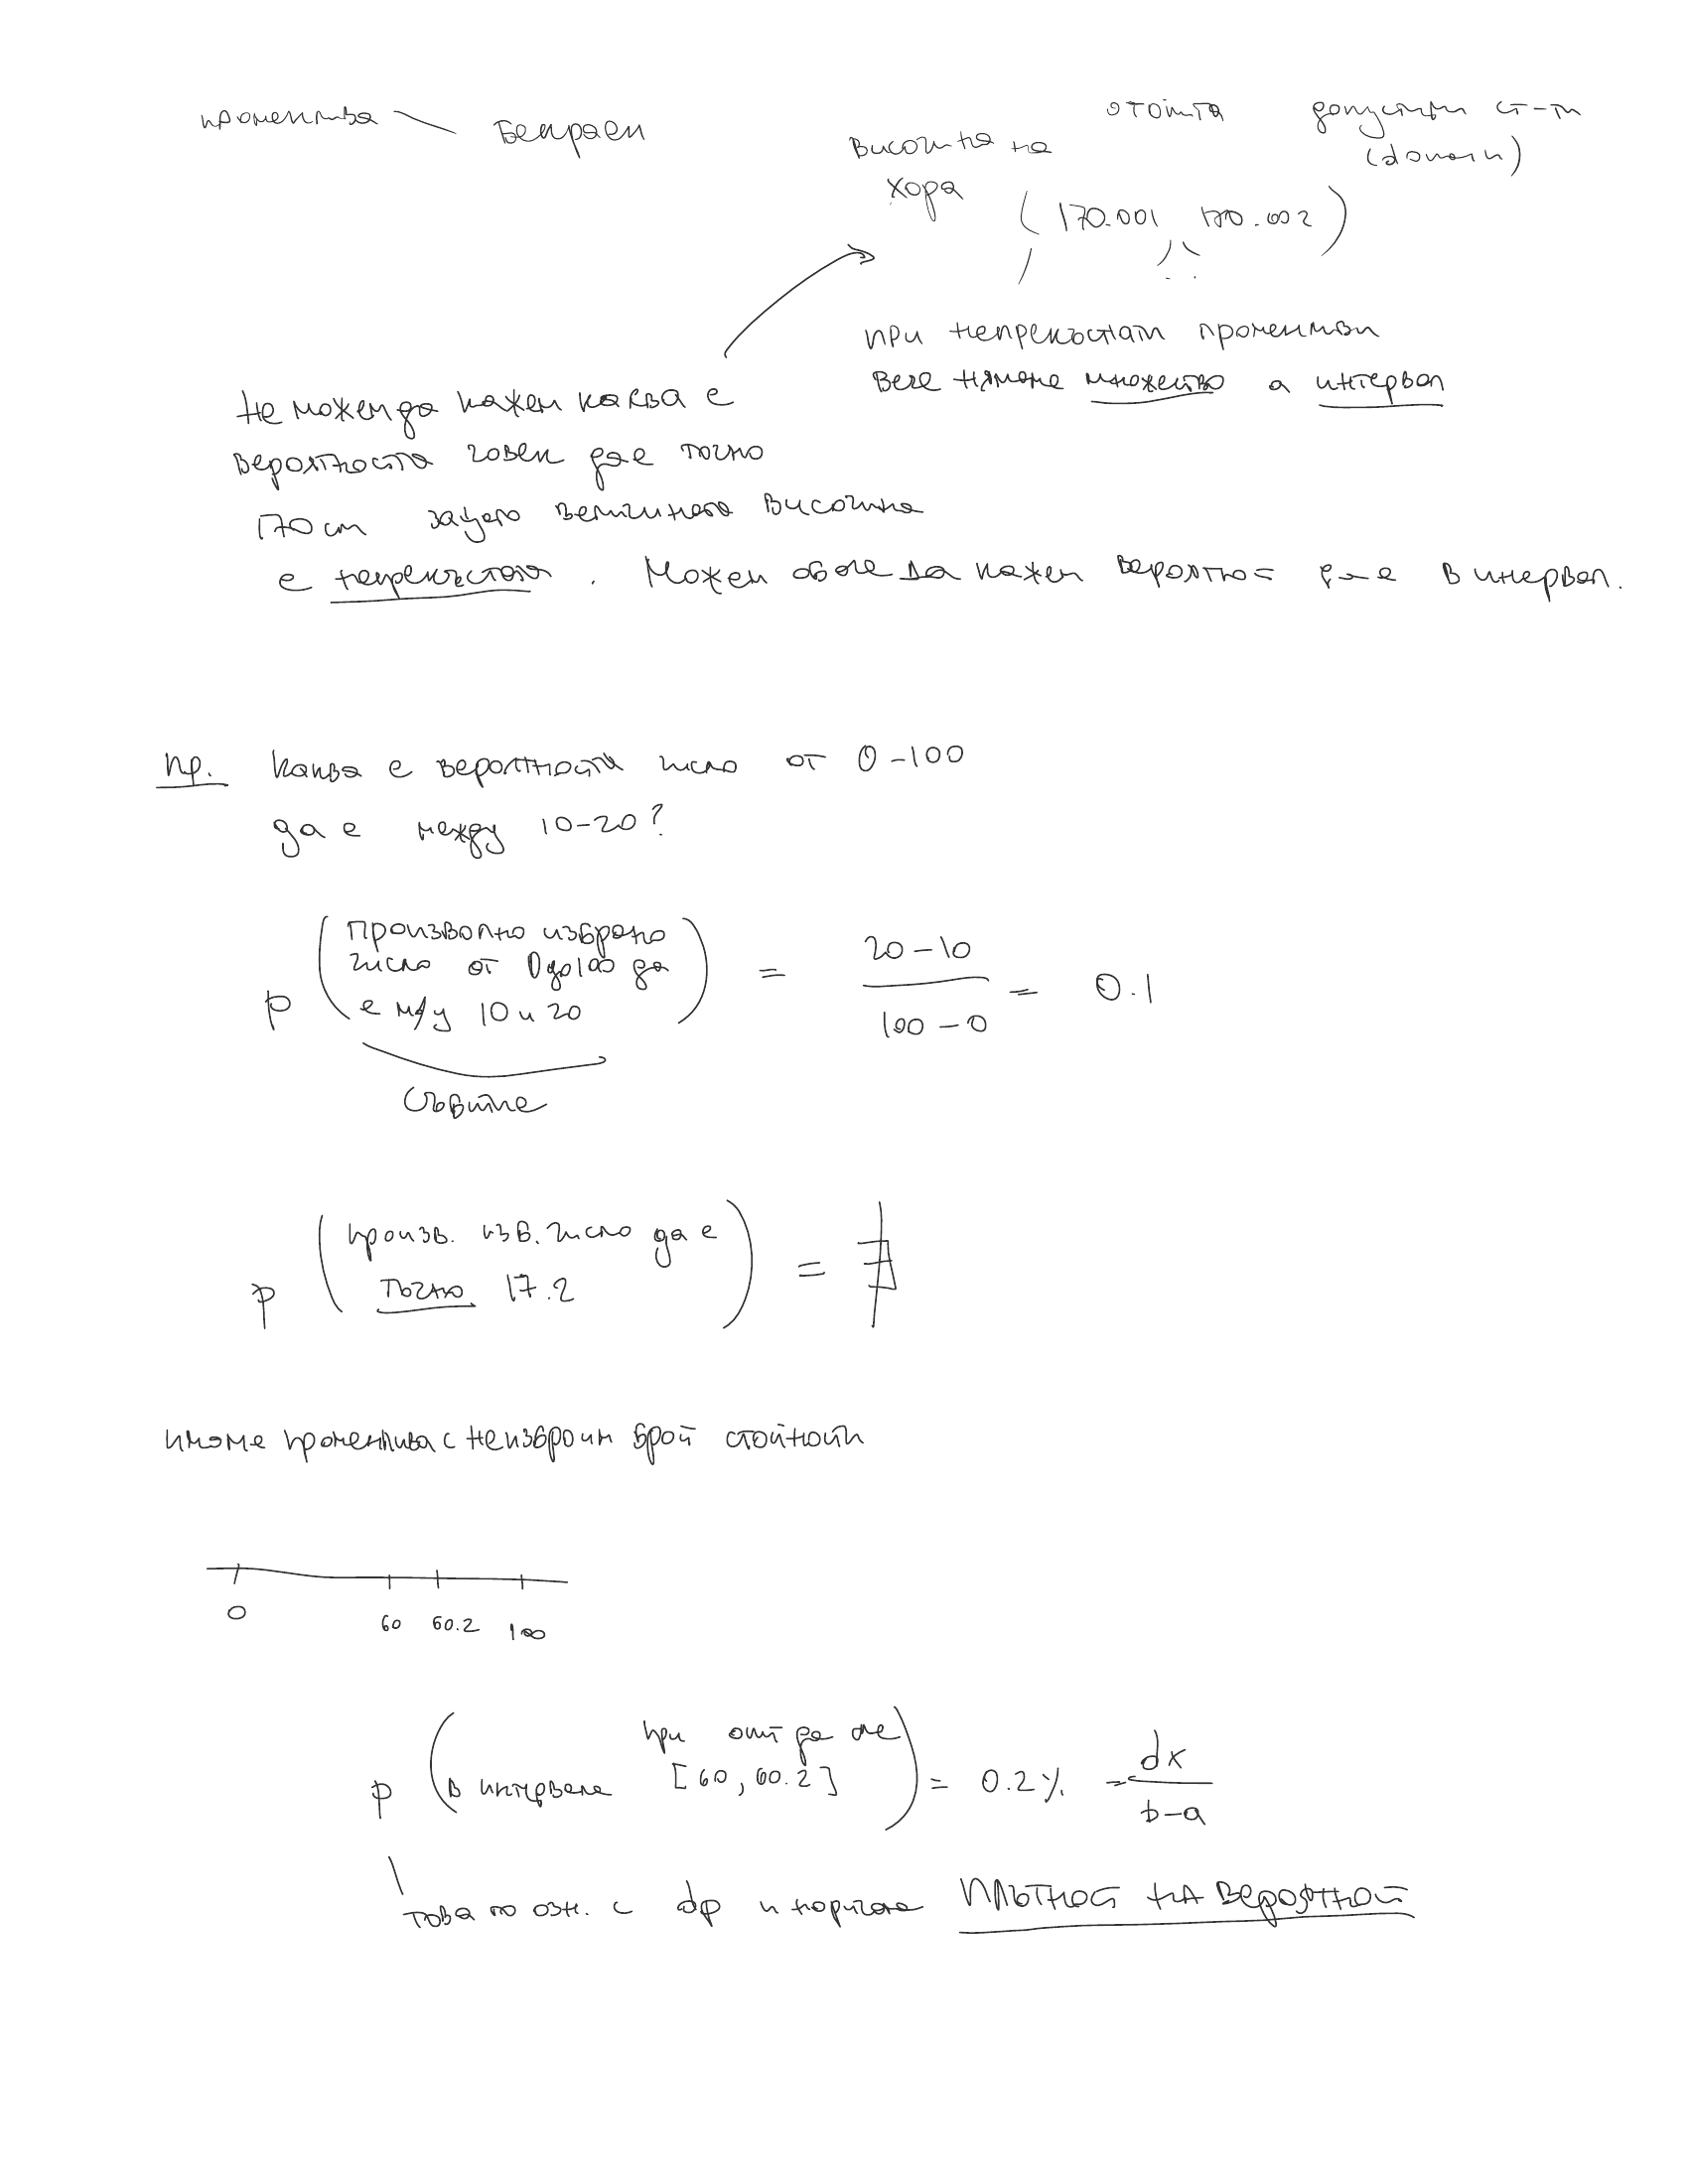 променлива
Безкраен
височина на
хора
допустими ст-ти
(domain)
(170.001 170.002)
при непрекъснати променливи
вече нямаме множество а интервал
Не можем да кажем каква е
вероятността човек да е точно
170 cm защото величината височина
е непрекъсната. Можем обаче да кажем вероятност да е в интервал.
Пр. Каква е вероятността число от 0-100
да е между 10-20?
p (Произволно избрано
число от 0 до 100 да
е м/у 10 и 20) = 20-10 / 100-0 = 0.1
Събитие
p (произв. изб. число да е
точно 17.2) = ∄
имаме променлива с неизброим брой стойности
0 60 60.2 100
p (при опит да
в интервала [60, 60.2]) = 0.2% = dx / b-a
това го озн. с dp и наричаме ПЛЪТНОСТ НА ВЕРОЯТНОСТ